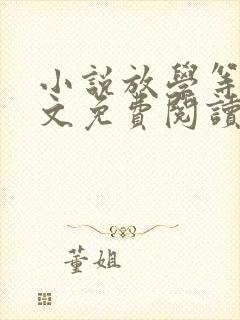 小説放學等
文免費閱讀
董姐